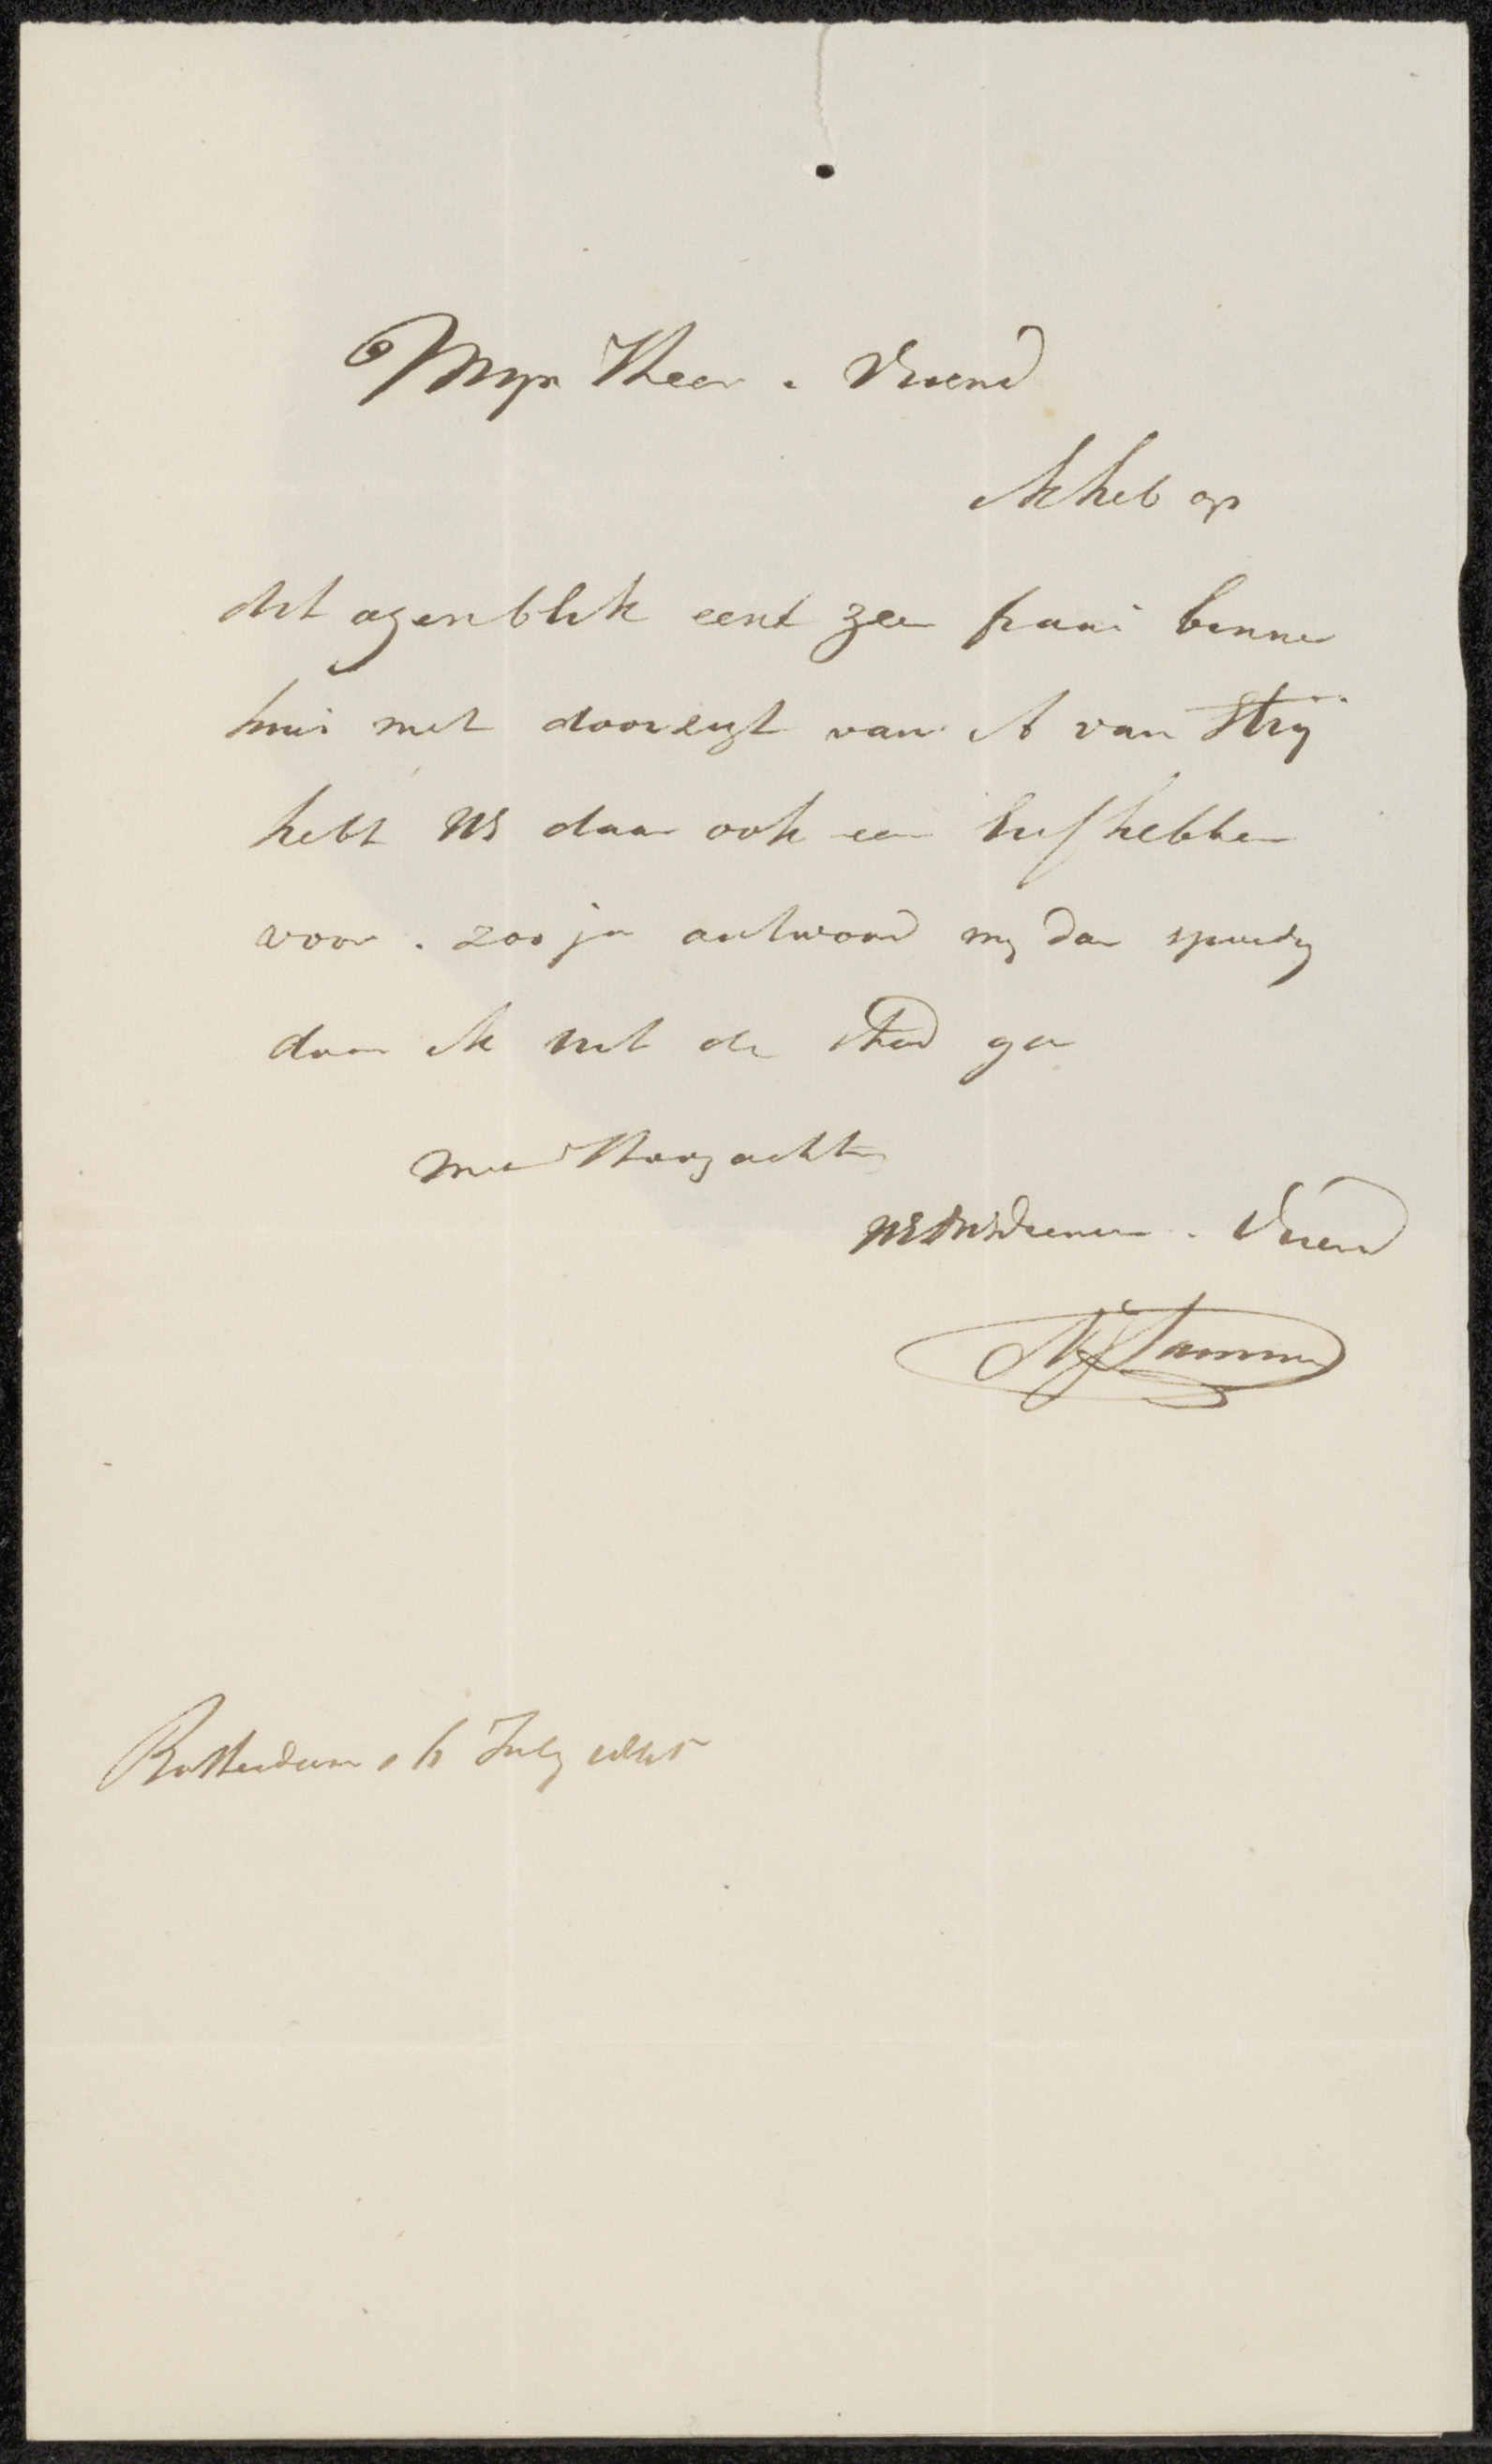 Mijn Heer . Vriend
Ik heb op
dit ogenblik eene zeer fraai binne
huis met doorzigt van A van Strij
hebt UE daar ook een liefhebber
voor . zoo ja antwoord mij dan spoedig
daar ik uit de stad ga
Met Hoogachting
UE Dienaar . Vriend
Lamme
Rotterdam 16 July